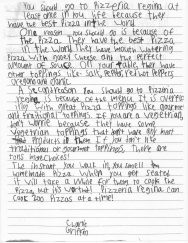 You should go to Pizzeria Regina at
least once in your life because they
have the best Pizza in the world.
One reason you should go is because of
the Pizza. They have the best Pizza
in the world. They have mouth watering
Pizza with moist cheese and the perfect
amount of sauce. On your table they have
other toppings like: salt, pepper, red hot peppers
oregano and garlic.
A second reason you should go to Pizzeria
regina is because of the menu. It is overflowing
with great Pizza toppings like gourmet
and traditional toppings. If you are a vegetarian
don't worrie because they have some
vegetarian toppings that don't have any meat
Products in them. If you don't like
traditional or gourmet toppings. There are
tons more choices!
The instant you walk in you smell
homemade Pizza. When you get seated
it will take a while for them to cook the
Pizza but it's worth it! Pizzeria Regina can
cook 200 Pizzas at a time!
Love